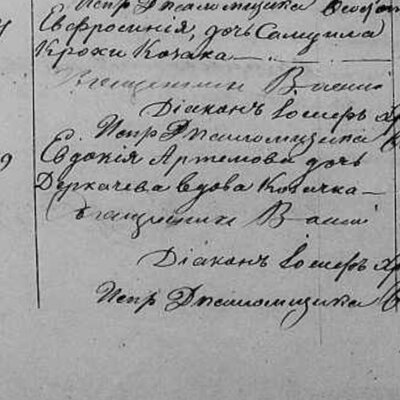 Испр Дпсаломщика
Евфросинія, дочь Самуила
Крохи Козака
Священник Васи
Діаконъ Іосифъ Хр
Испр Дпсаломщика
9 Евдокія Артемова дочь
Деркачева вдова Козачка
Священник Васи
Діаконъ Іосифъ Хр
Испр Дпсаломщика